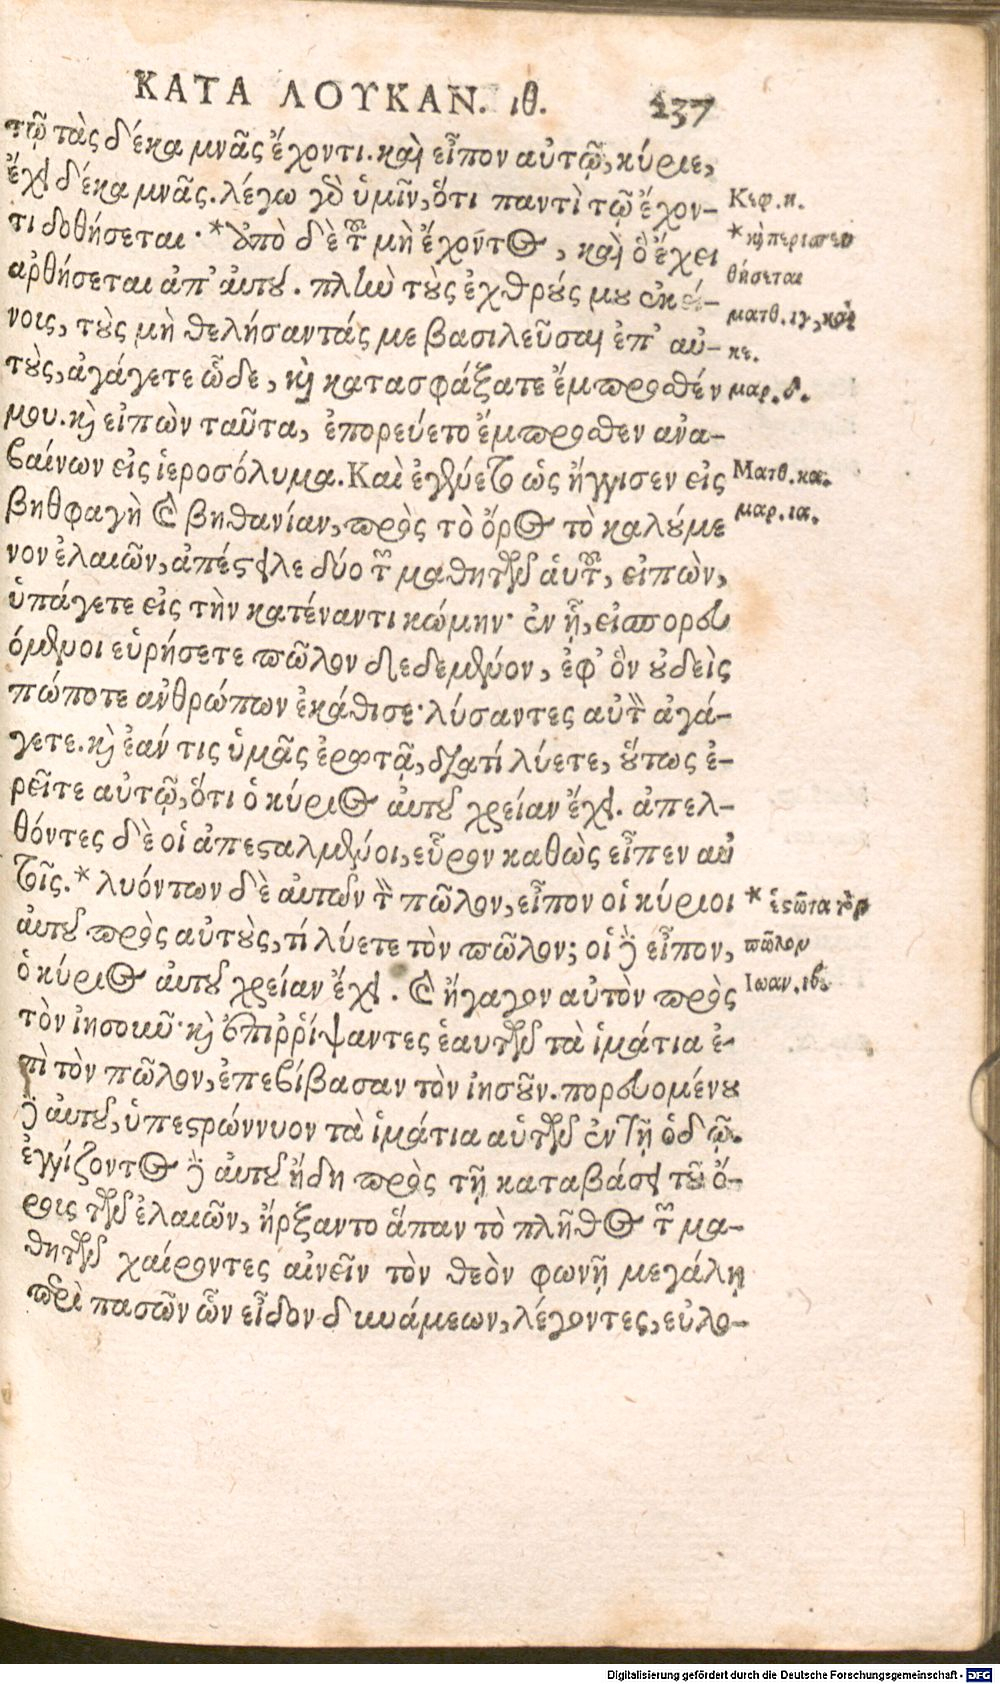 ΚΑΤΑ ΛΟΥΚΑΝ. ιθ. 237
τῷ τὰς δέκα μνᾶς ἔχοντι. καὶ εἶπον αὐτῷ, κύριε,
ἔχει δέκα μνᾶς. λέγω γὰρ ὑμῖν, ὅτι παντὶ τῷ ἔχον-
τι δοθήσεται· *ἀπὸ δὲ τοῦ μὴ ἔχοντος, καὶ ὃ ἔχει
ἀρθήσεται ἀπ' αὐτοῦ. πλὴν τοὺς ἐχθρούς μου ἐκεί-
νοις, τοὺς μὴ θελήσαντάς με βασιλεῦσαι ἐπ' αὐ-
τοὺς, ἀγάγετε ὧδε, καὶ κατασφάξατε ἔμπροσθέν
μου. καὶ εἰπὼν ταῦτα, ἐπορεύετο ἔμπροσθεν ἀνα-
βαίνων εἰς ἱεροσόλυμα. Καὶ ἐγένετο ὡς ἤγγισεν εἰς
βηθφαγὴ καὶ βηθανίαν, πρὸς τὸ ὄρος τὸ καλούμε
νον ἐλαιῶν, ἀπέστειλε δύο τῶν μαθητῶν αὑτοῦ, εἰπὼν,
ὑπάγετε εἰς τὴν κατέναντι κώμην· ἐν ᾗ, εἰσπορευ
όμενοι εὑρήσετε πῶλον δεδεμένον, ἐφ' ὃν οὐδεὶς
πώποτε ἀνθρώπων ἐκάθισε· λύσαντες αὐτὸν ἀγά-
γετε. καὶ ἐάν τις ὑμᾶς ἐρωτᾷ, διατί λύετε, οὕτως ἐ-
ρεῖτε αὐτῷ, ὅτι ὁ κύριος αὐτοῦ χρείαν ἔχει. ἀπελ-
θόντες δὲ οἱ ἀπεσταλμένοι, εὗρον καθὼς εἶπεν αὐ
τοῖς. *λυόντων δὲ αὐτῶν τὸν πῶλον, εἶπον οἱ κύριοι
αὐτοῦ πρὸς αὐτοὺς, τί λύετε τὸν πῶλον; οἱ δὲ εἶπον,
ὁ κύριος αὐτοῦ χρείαν ἔχει. καὶ ἤγαγον αὐτὸν πρὸς
τὸν ἰησοῦν· καὶ ἐπιῤῥίψαντες ἑαυτῶν τὰ ἱμάτια ἐ-
πὶ τὸν πῶλον, ἐπεβίβασαν τὸν ἰησοῦν. πορευομένου
δὲ αὐτοῦ, ὑπεστρώννυον τὰ ἱμάτια αὑτῶν ἐν τῇ ὁδῷ.
ἐγγίζοντος δὲ αὐτοῦ ἤδη πρὸς τῇ καταβάσει τοῦ ὄ-
ρους τῶν ἐλαιῶν, ἤρξαντο ἅπαν τὸ πλῆθος τῶν μα-
θητῶν χαίροντες αἰνεῖν τὸν θεὸν φωνῇ μεγάλῃ
περὶ πασῶν ὧν εἶδον δυνάμεων, λέγοντες, εὐλο-
Κεφ. κ.
*καὶ περισσευ
θήσεται
ματθ. ιγ, καὶ
κε.
μαρ. δ.
Ματθ. κα.
μαρ. ια.
* ἑστῶτα τὸν
πῶλον
Ιωαν. ιβ.
Digitalisierung gefördert durch die Deutsche Forschungsgemeinschaft - DFG